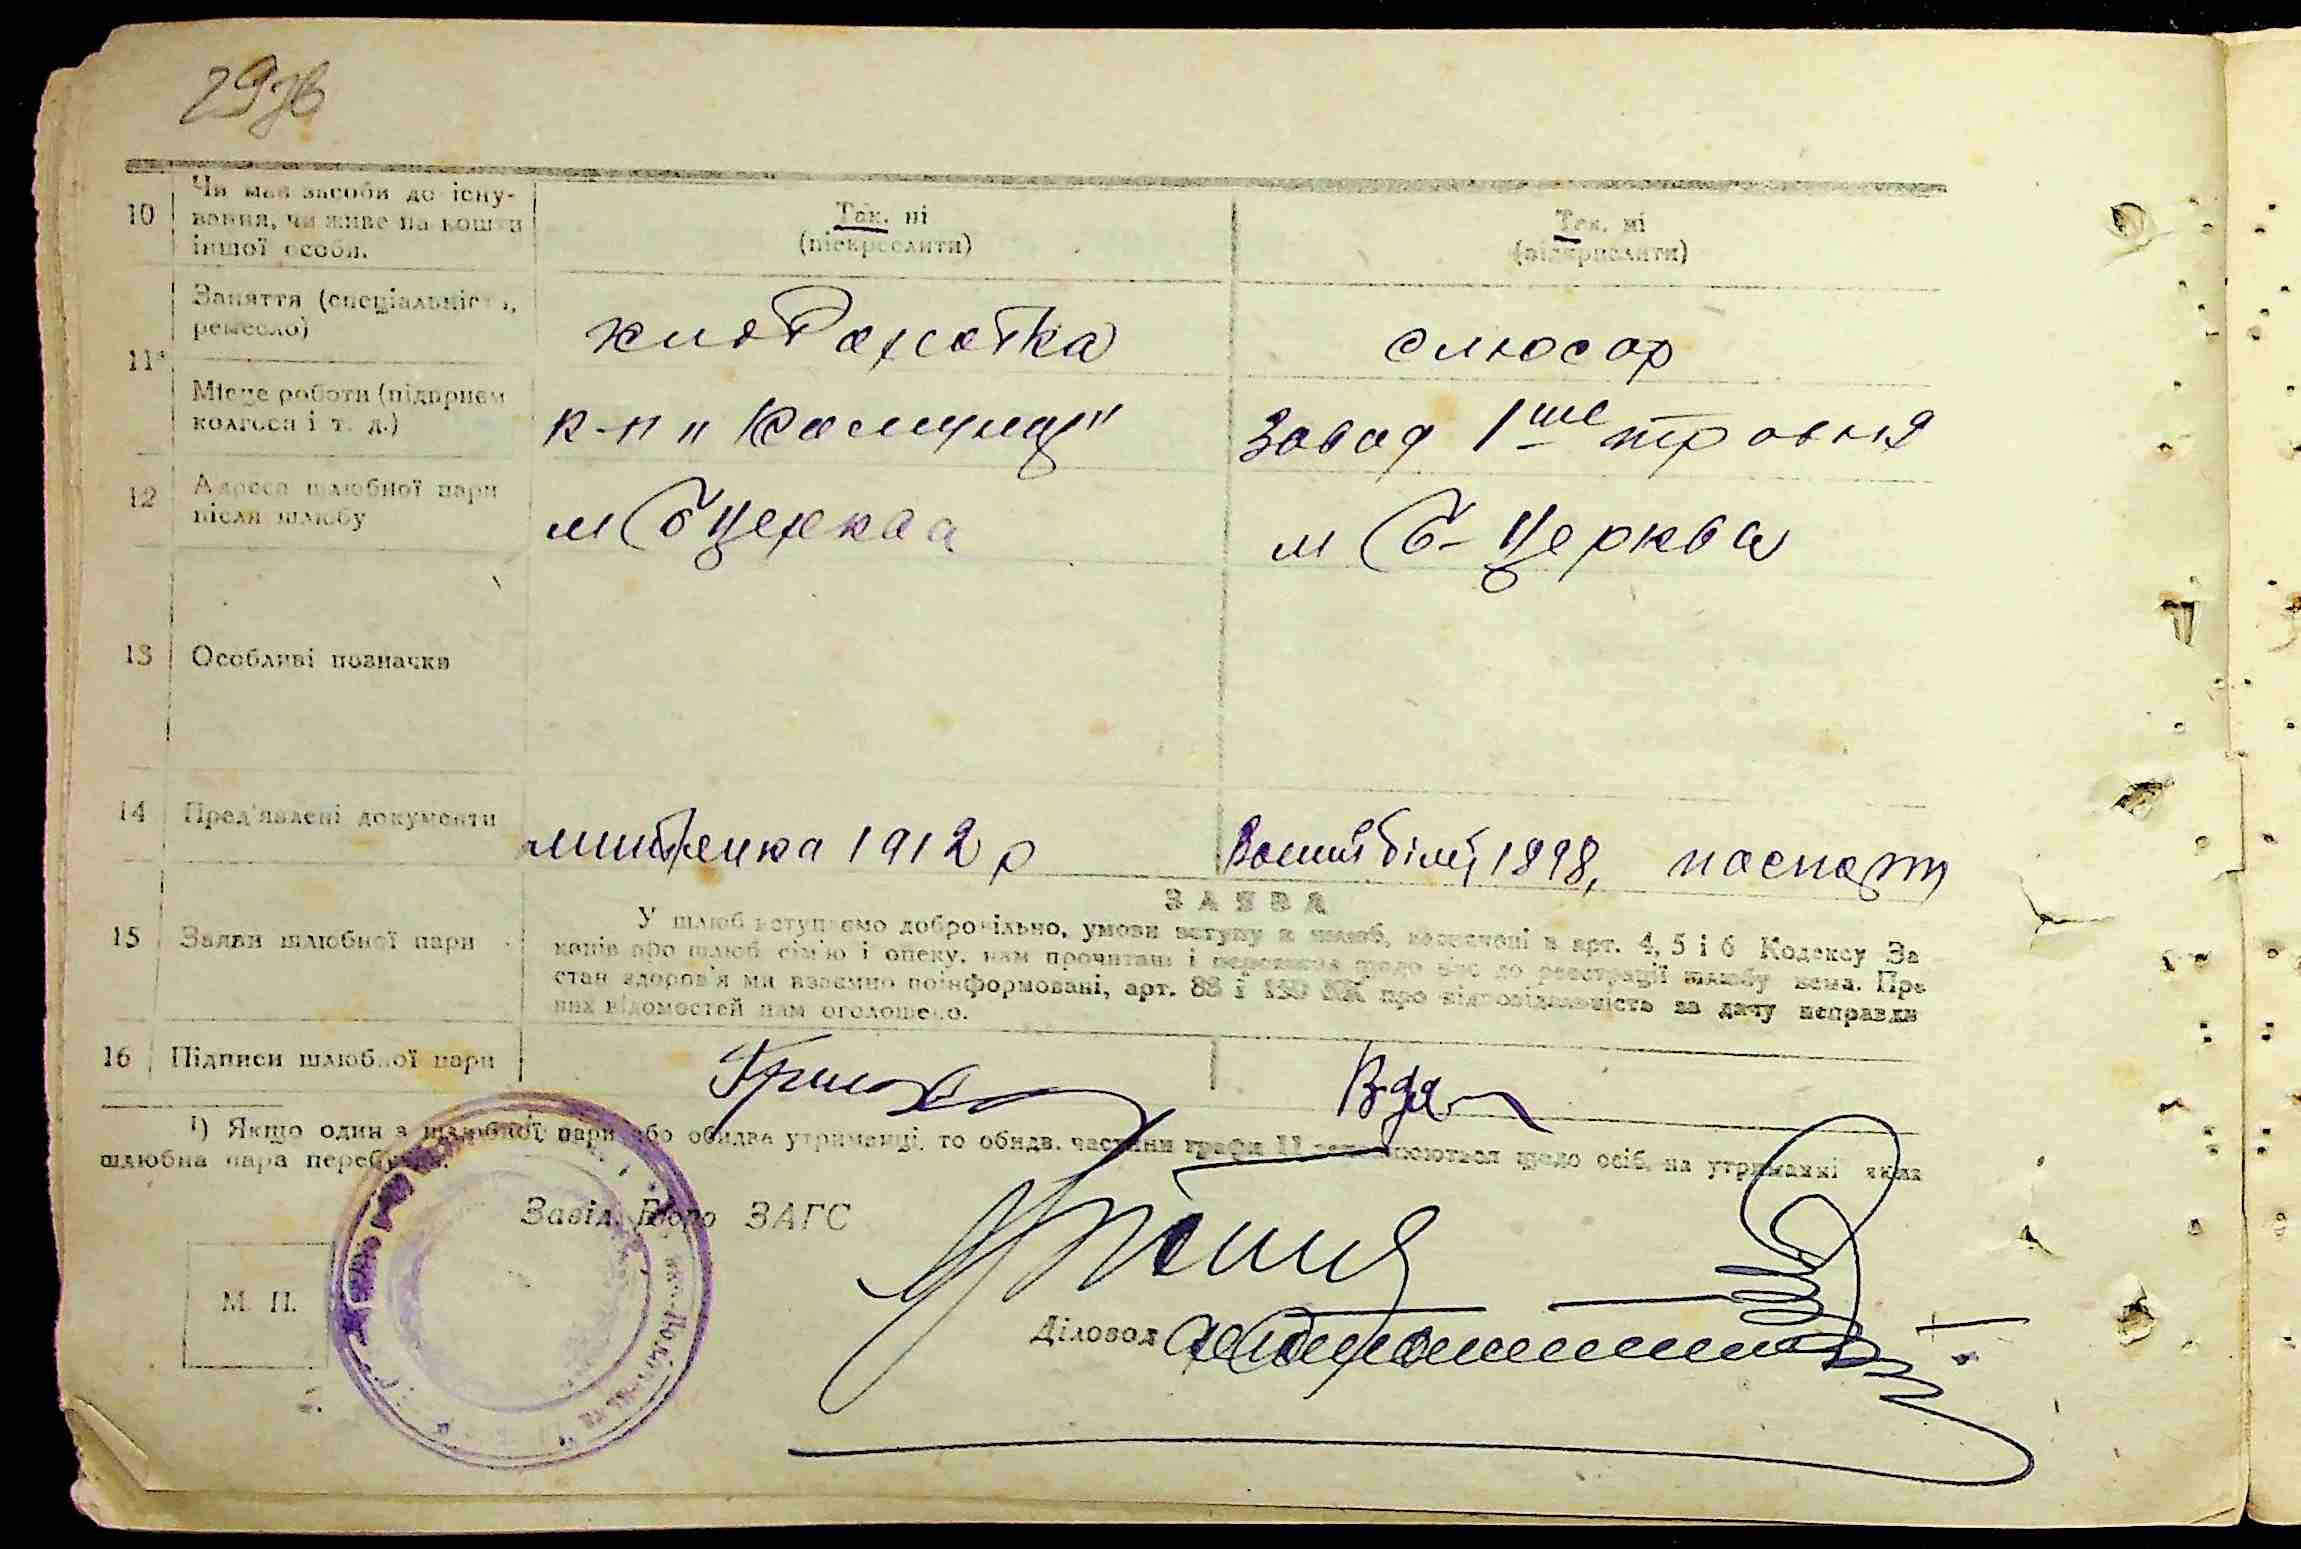 10 Чи має засоби до існу-
вання, чи живе на кошти
іншої особи.
Так. ні
(підкреслити)
Так. ні
(підкреслити)
11 Заняття (спеціальність,
ремесло)
слюсар
Місце роботи (підприєм
колгосп і т. д.)
к-п „
Завод 1ше травня
12 Адреса шлюбної пари
після шлюбу
м Б Церква
м Б-Церква
13 Особливі позначки
14 Пред'явлені документи
1912 р
біл, 1898, паспорт
ЗАЯВА
15 Заяви шлюбної пари
У шлюб вступаємо добровільно, умови вступу в шлюб, зазначені в арт. 4, 5 і 6 Кодексу За
конів про шлюб сім'ю і опеку, нам прочитані і перешкод щодо нас до реєстрації шлюбу нема. Про
стан здоров'я ми взаємно поінформовані, арт. 88 і КК про відповідальність за дачу неправди
вих відомостей нам оголошено.
16 Підписи шлюбної пари
¹) Якщо один з шлюбної пари або обидва утриманці, то обидв. частини графи 11 заповнюються щодо осіб, на утриманні яких
шлюбна пара перебуває.
Завід. Бюро ЗАГС
М. П.
Діловод